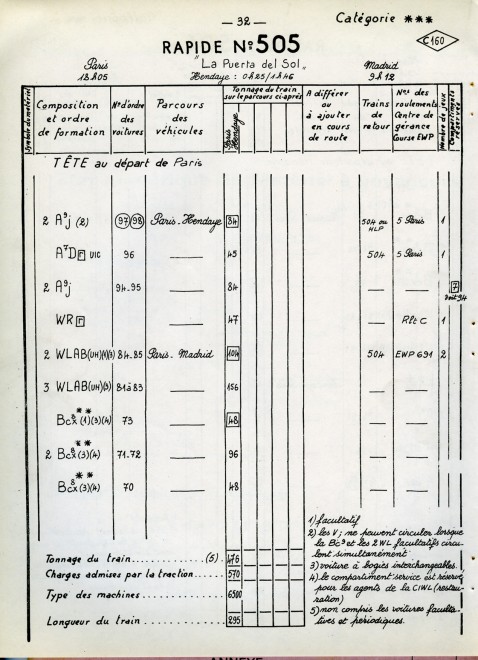 — 32 —
Catégorie ***
RAPIDE Nº505
C160
"La Puerta del Sol"
Paris
18h05
Hendaye : 0h25/1h46
Madrid
9h12
Symbole de matériel
Composition et ordre de formation
Nºd'ordre des voitures
Parcours des véhicules
Tonnage du train sur le parcours ci-après
Paris Hendaye
A différer ou à ajouter en cours de route
Trains de retour
Nºs des roulements Centre de gérance Course EWP
Nombre de jeux
Compartiments réservés
TÊTE au départ de Paris
2 A⁹j (2) 97 98 Paris-Hendaye 84 504 ou HLP 5 Paris 1
A⁷D r UIC 96 — 45 504 5 Paris 1
2 A⁹j 94-95 — 84 — — 7
voit 94
WR r — 47 — Rlt C 1
2 WLAB(UH)(1)(3) 84-85 Paris-Madrid 104 504 EWP 691 2
3 WLAB(UH)(3) 81à83 — 156 — —
**
Bc⁹x (1)(3)(4) 73 — 48 — —
**
2 Bc⁹x (3)(4) 71.72 — 96 — —
**
Bc⁹x (3)(4) 70 — 48 — —
1) facultatif
2) les V; ne peuvent circuler lorsque
la Bc⁹ et les 2WL facultatifs circu-
lent simultanément
3) voiture à bogies interchangeables.
4) le compartiment service est réservé
pour les agents de la CIWL (restau-
ration)
5) non compris les voitures faculta-
tives et périodiques.
Tonnage du train (5). 476
Charges admises par la traction 570
Type des machines 6500
Longueur du train 295